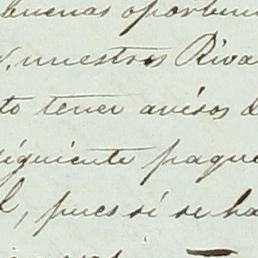 buenas oportun
nuestros Riva
to tener avisos d
siguiente paque
l, pues si se ha